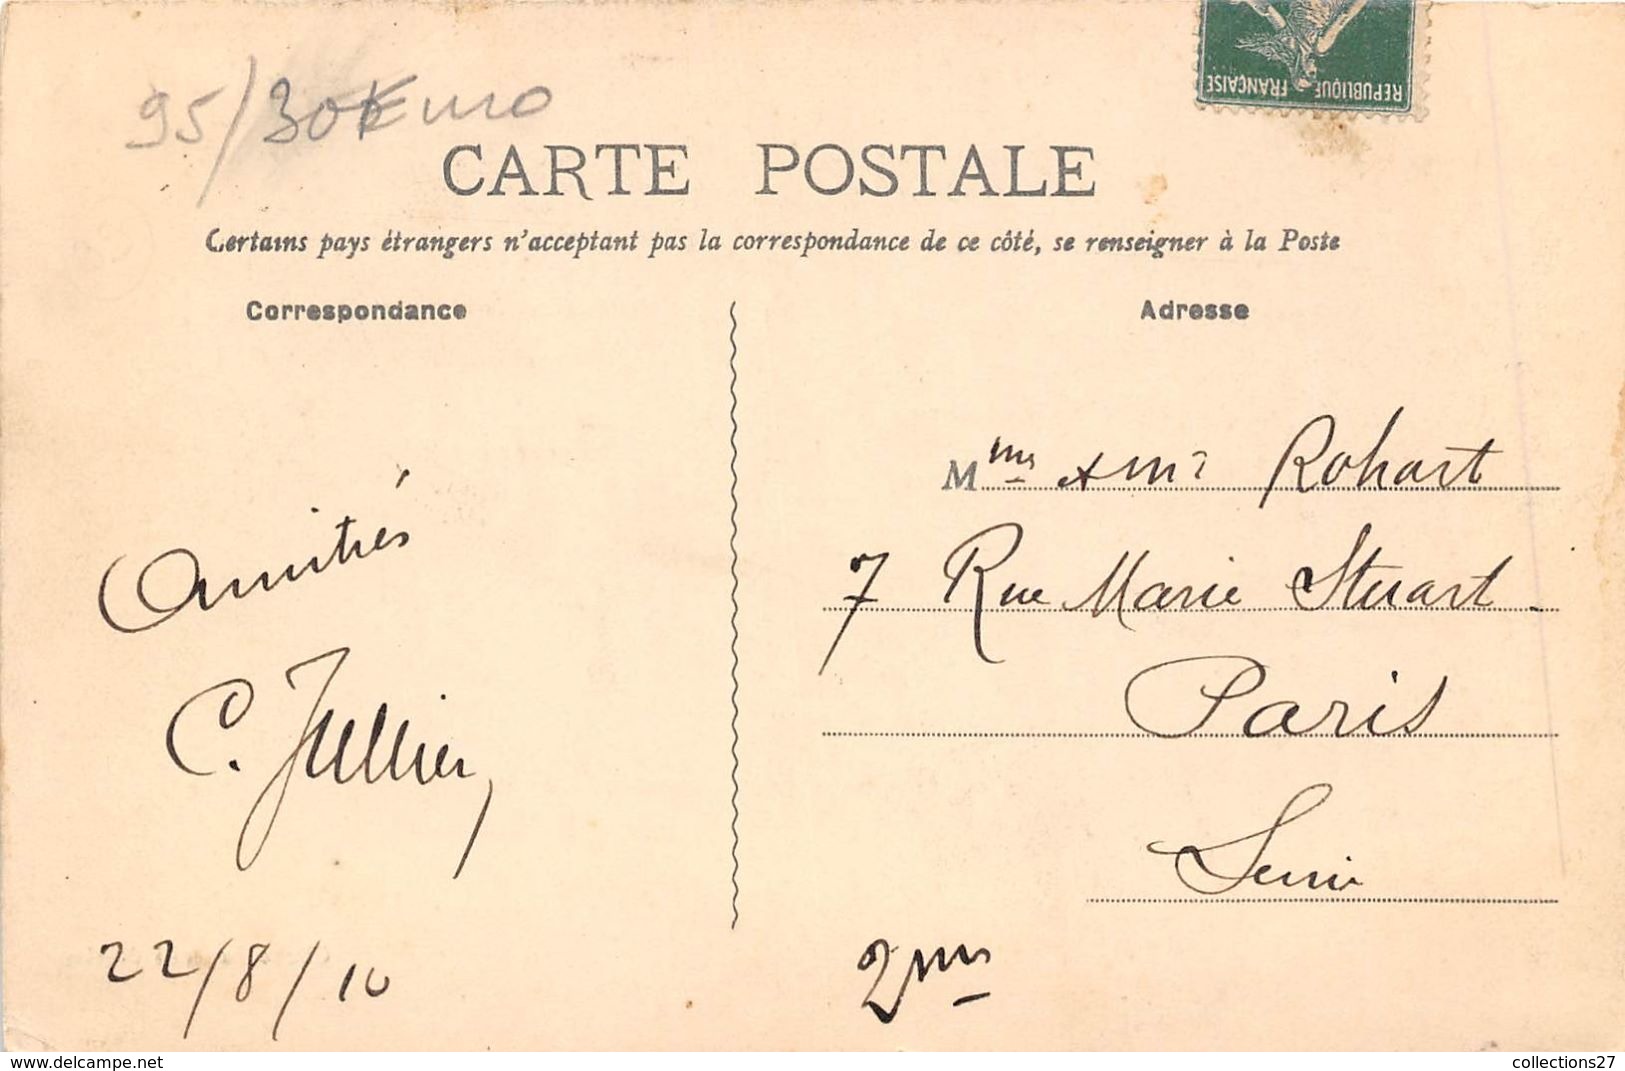 95/30 Euro
REPUBLIQUE FRANÇAISE
CARTE POSTALE
Certains pays étrangers n'acceptant pas la correspondance de ce côté, se renseigner à la Poste
Correspondance
Adresse
Amitiés
C. Jullier
22/8/10
Mme & Mr Rohart
7 Rue Marie Stuart
Paris
Seine
2me
www.delcampe.net
collections27